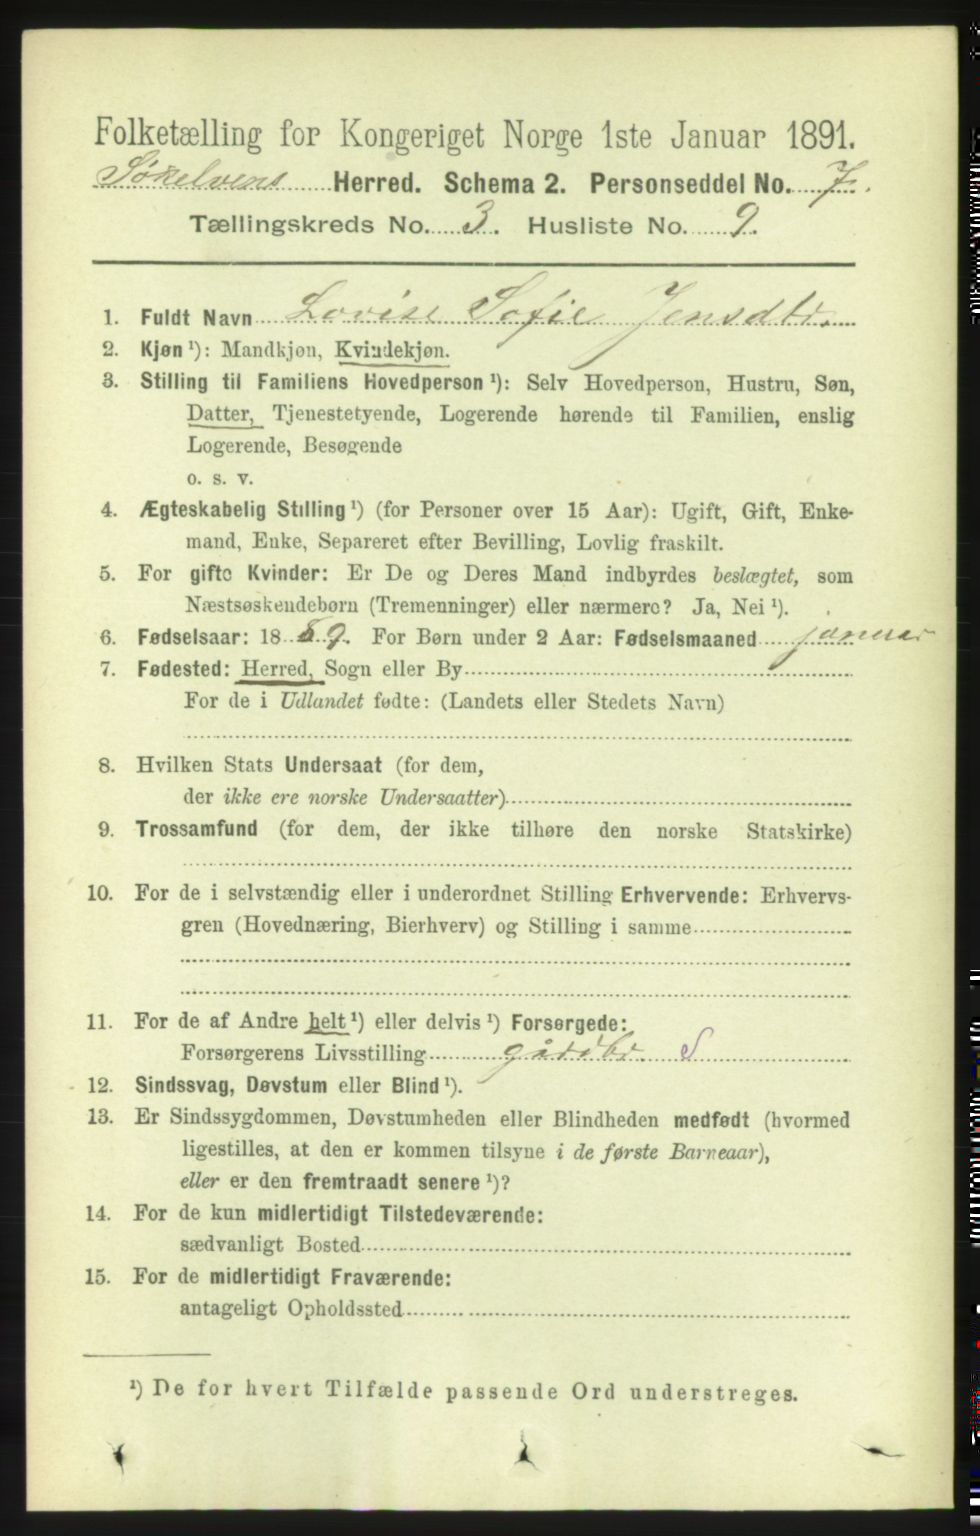 Folketælling for Kongeriget Norge 1ste Januar 1891.
Søkelvens Herred. Schema 2. Personseddel No. 7.
Tællingskreds No. 3. Husliste No. 9.
1. Fuldt Navn Lovise Sofie Jensdtr.
2. Kjøn ¹): Mandkjøn, Kvindekjøn.
3. Stilling til Familiens Hovedperson ¹): Selv Hovedperson, Hustru, Søn,
Datter, Tjenestetyende, Logerende hørende til Familien, enslig
Logerende, Besøgende
o. s. v.
4. Ægteskabelig Stilling ¹) (for Personer over 15 Aar): Ugift, Gift, Enke-
mand, Enke, Separeret efter Bevilling, Lovlig fraskilt.
5. For gifte Kvinder: Er De og Deres Mand indbyrdes beslægtet, som
Næstsøskendebørn (Tremenninger) eller nærmere? Ja, Nei ¹).
6. Fødselsaar: 1889. For Børn under 2 Aar: Fødselsmaaned januar
7. Fødested: Herred, Sogn eller By
For de i Udlandet fødte: (Landets eller Stedets Navn)
8. Hvilken Stats Undersaat (for dem,
der ikke ere norske Undersaatter)
9. Trossamfund (for dem, der ikke tilhøre den norske Statskirke)
10. For de i selvstændig eller i underordnet Stilling Erhvervende: Erhvervs-
gren (Hovednæring, Bierhverv) og Stilling i samme
11. For de af Andre helt ¹) eller delvis ¹) Forsørgede:
Forsørgerens Livsstilling gårdbr S
12. Sindssvag, Døvstum eller Blind ¹).
13. Er Sindssygdommen, Døvstumheden eller Blindheden medfødt (hvormed
ligestilles, at den er kommen tilsyne i de første Barneaar),
eller er den fremtraadt senere ¹)?
14. For de kun midlertidigt Tilstedeværende:
sædvanligt Bosted
15. For de midlertidigt Fraværende:
antageligt Opholdssted
¹) De for hvert Tilfælde passende Ord understreges.